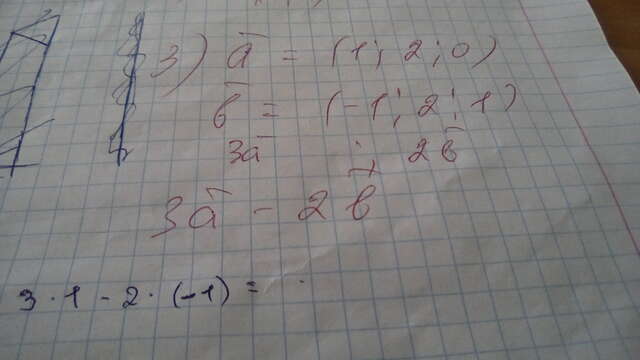 3) a̅ = (1; 2; 0)
в̅ = (-1; 2; 1)
3a̅ ; 2в̅
3a̅ - 2в⃗
3 · 1 - 2 · (-1) =